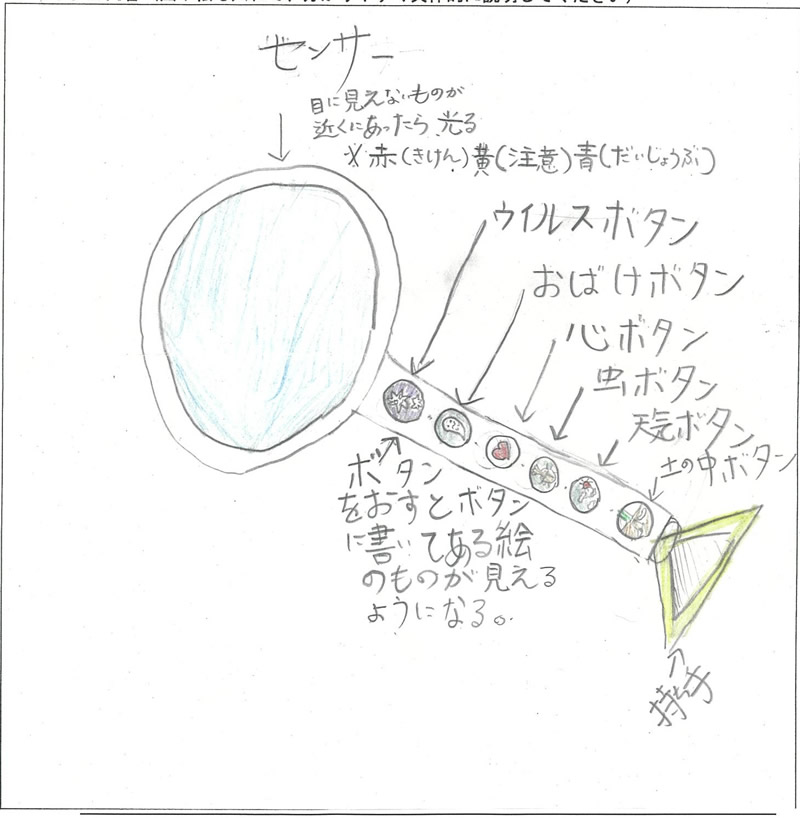 センサー
目に見えないものが
近くにあったら、光る
※赤(きけん)黄(注意)青(だいじょうぶ)
ウイルスボタン
おばけボタン
心ボタン
虫ボタン
天気ボタン
土の中ボタン
ボタン
をおすとボタン
に書いてある絵
のものが見える
ようになる。
持ち手